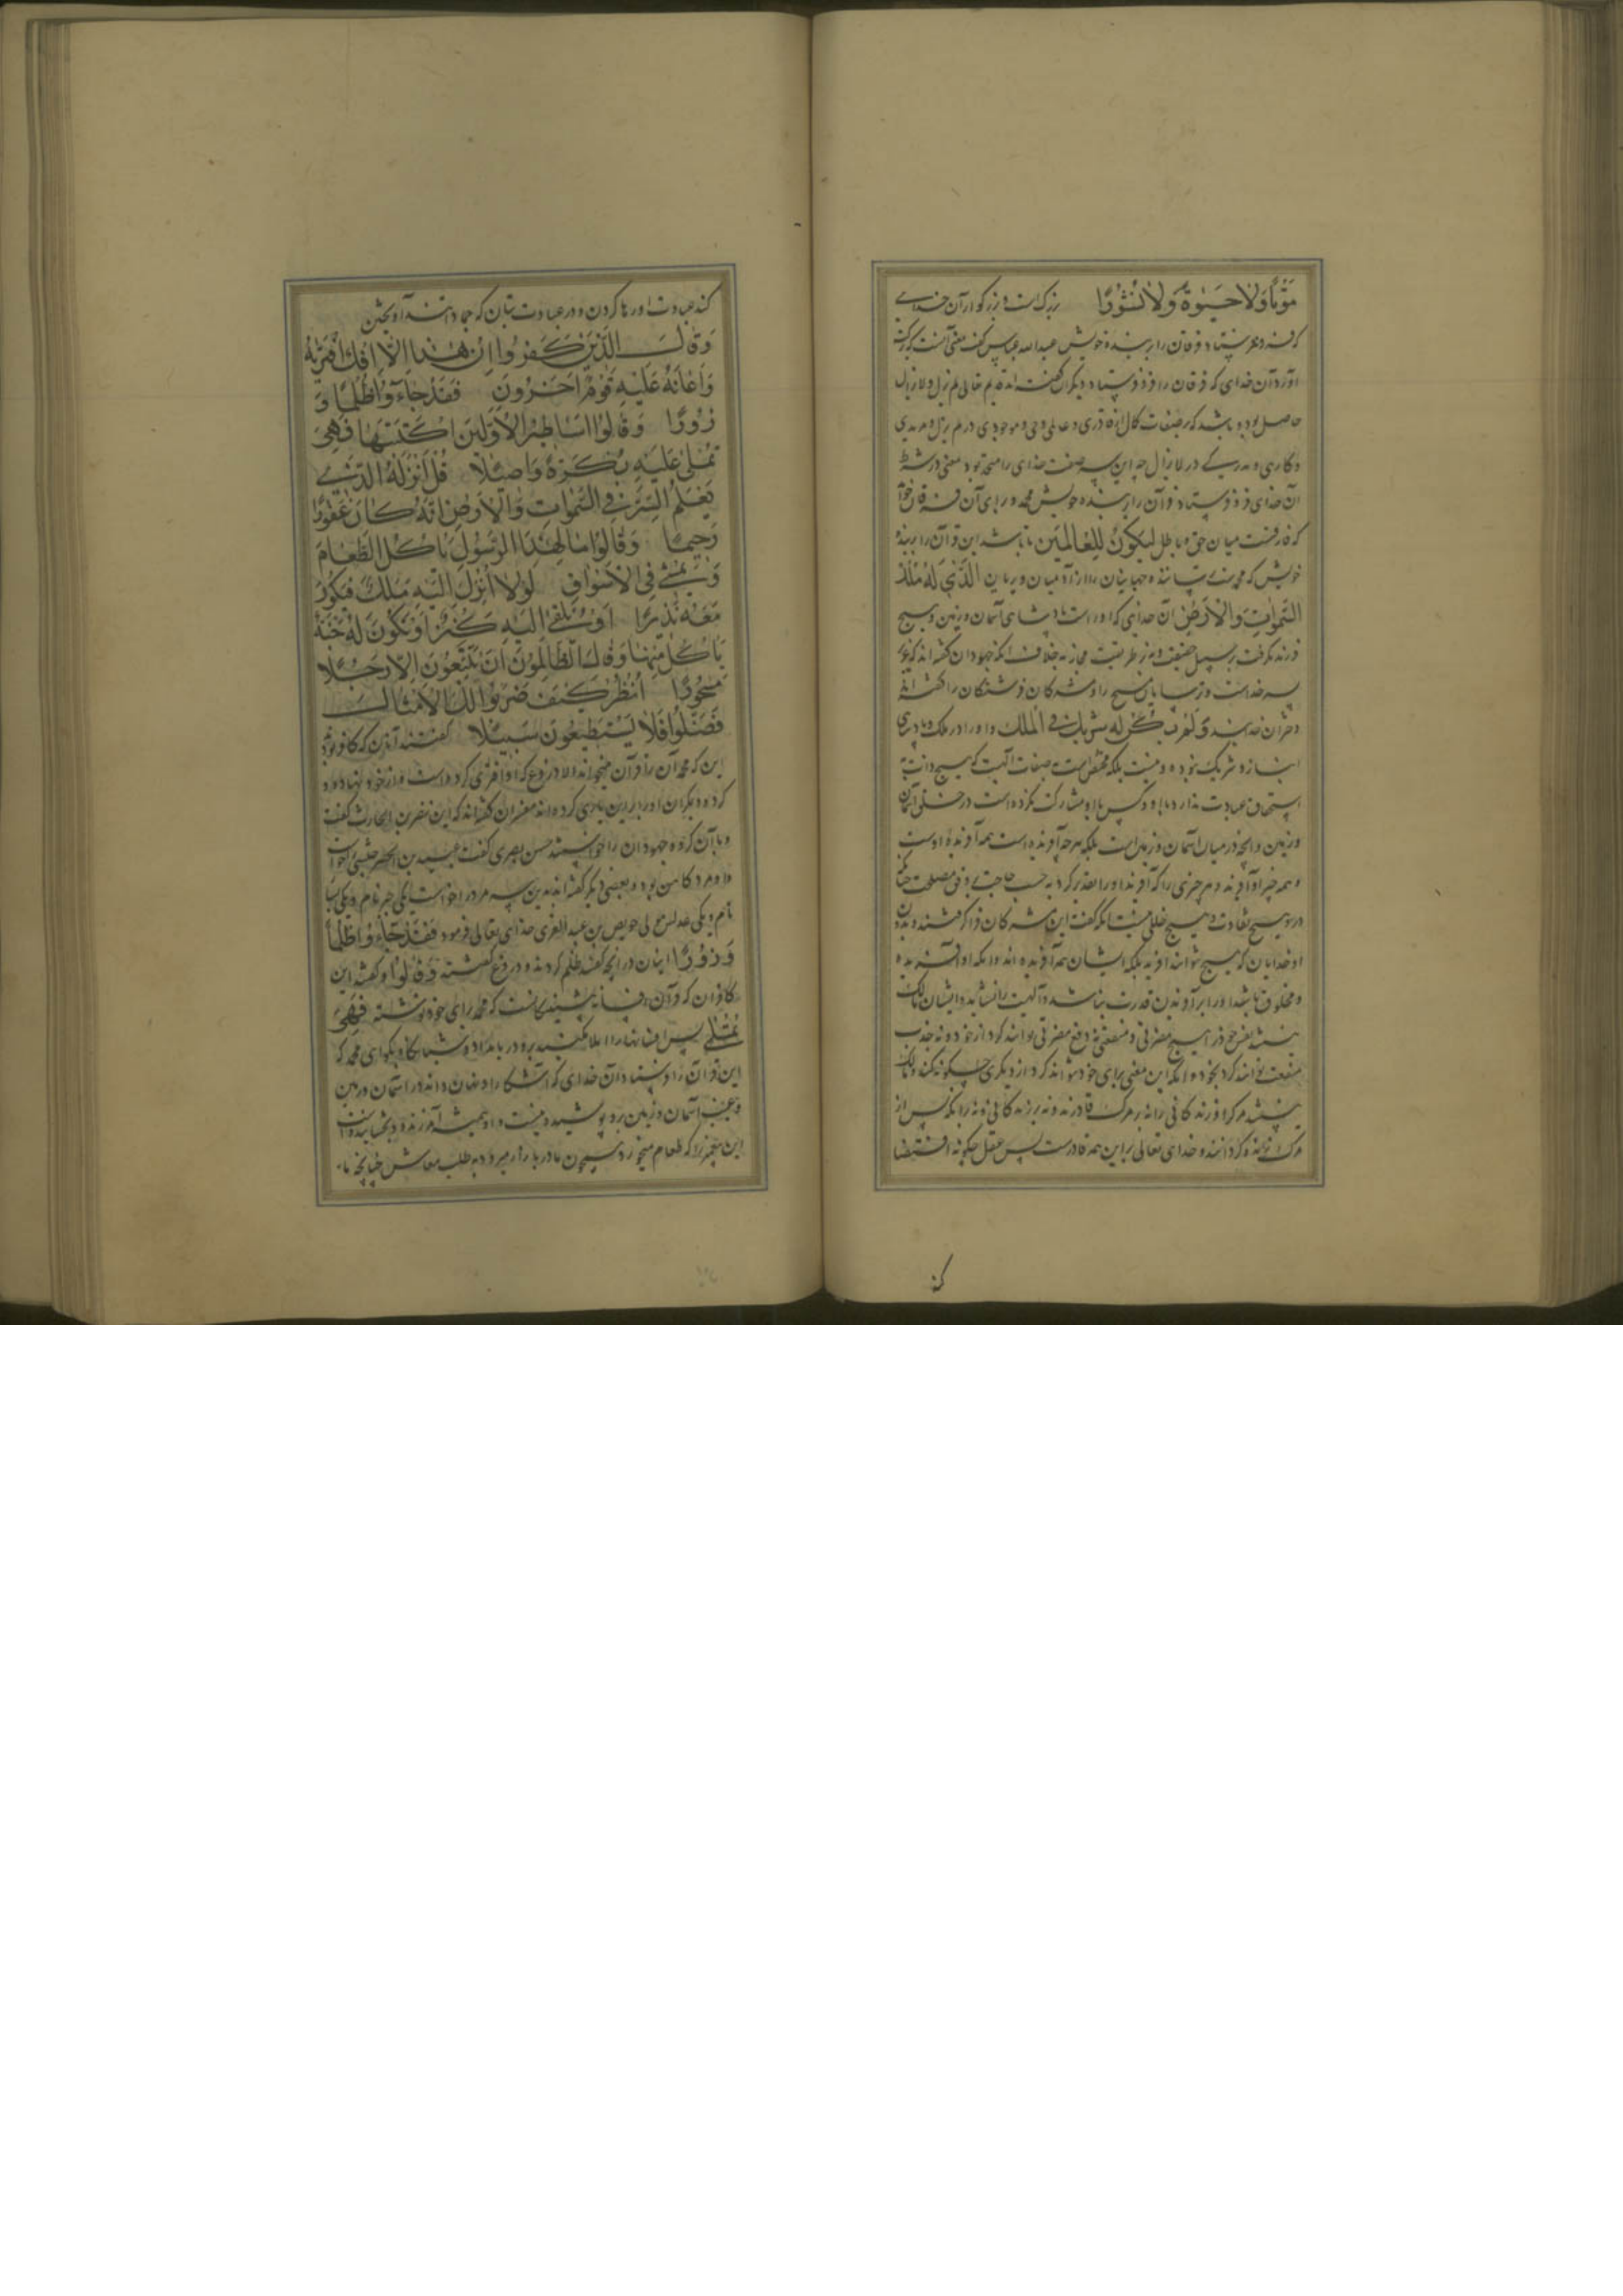 مَوْتًا وَلَا حَیٰوةً وَلَا نُشُورًا بزرکست و بزرکوار آن خدای
که فرو فرستاد فرقان را بر بنده خویش عبدالله عباس کفت معنی آنست که برکت
آورد آن خدای که فرقان را فرو فرستاد و دیکران کفته اند قدیم تعالی لم یزل و لا یزال
حاصل بود و باشد که بر صفات کمال از قادری و عالمی و حی و موجودی در لم یزل و مریدی
و کارهی و مدرکی در لا یزال چه این سه صفت خدای را متجدد بود معنی
آن خدای فرو فرستاد قرآن را بر بنده خویش محمد و برای آن فرقان خواند
که فارقست میان حق و باطل لِیَکُونَ لِلْعَالَمِینَ تا باشد این قرآن را بر بنده
خویش که محمد است ترساننده جهانیان را از آدمیان و پریان الَّذِی لَهُ مُلْكُ
السَّمٰوَاتِ وَالْأَرْضِ آن خدایی که او راست پادشاهی آسمان و زمین و هیچ
فرزند نکرفت بر سبیل حقیقت و نه بر طریقت مجاز نه بخلاف آنکه جهودان کفته اند که عزیر
پسر خداست و ترسایان مسیح را و مشرکان فرشتکان را کفته اند
دختران خدایند وَلَمْ یَکُنْ لَهُ شَرِیكٌ فِی الْمُلْكِ و او را در ملک و پادشاهی
انباز و شریک نبوده و نیست بلکه مختصست به صفات آلهیت که هیچ ذات
استحقاق عبادت ندارد با او و کس با او مشارکت نکرده است در خلق آسمان
و زمین و آنچه در میان آسمان و زمین است بلکه هرچه آفریده است همه آفریده اوست
و همه چیز او آفریند و هر چیزی را که آفریند او را تقدیر کرد به حسب حاجت و وفق مصلحت چنانکه
درو هیچ تفاوت و هیچ خللی نیست آنکه کفت این مشرکان فرا کرفتند بدون
او خدایان که هیچ نتوانند آفرید بلکه ایشان همه آفریده اند و آنکه او آفریده
و مخلوق باشد او را بر آفریدن قدرت نباشد و آلهیت را نشاید و ایشان مالک
نیستند نفس خود را هیچ مضرتی و منفعتی نه دفع مضرتی توانند کرد از خود و نه جذب
منفعت توانند کرد بخود و آنکه این معنی برای خود نتواند کرد از دیکری چکونه کند و مالک
نیستند مرک را و زندکانی را نه بر مرک قادرند و نه بر زندکانی و نه بر آنکه پس از
مرک زنده کردانند و خدای تعالی بر این همه قادرست پس عقل چکونه اقتضا
کند
کند عبادت او رها کردن و در عبادت بتان که جماداتند آویختن
وَقَالَ الَّذِینَ كَفَرُوا إِنْ هٰذَا إِلَّا إِفْكٌ افْتَرٰیهُ
وَأَعَانَهُ عَلَیْهِ قَوْمٌ آخَرُونَ فَقَدْ جَاءُوا ظُلْمًا وَ
زُورًا وَقَالُوا أَسَاطِیرُ الْأَوَّلِینَ اكْتَتَبَهَا فَهِیَ
تُمْلٰی عَلَیْهِ بُكْرَةً وَأَصِیلًا قُلْ أَنْزَلَهُ الَّذِی
یَعْلَمُ السِّرَّ فِی السَّمٰوَاتِ وَالْأَرْضِ إِنَّهُ كَانَ غَفُورًا
رَحِیمًا وَقَالُوا مَا لِهٰذَا الرَّسُولِ یَأْكُلُ الطَّعَامَ
وَیَمْشِی فِی الْأَسْوَاقِ لَوْلَا أُنْزِلَ إِلَیْهِ مَلَكٌ فَیَكُونَ
مَعَهُ نَذِیرًا أَوْ یُلْقٰی إِلَیْهِ كَنْزٌ أَوْ تَكُونُ لَهُ جَنَّةٌ
یَأْكُلُ مِنْهَا وَقَالَ الظَّالِمُونَ إِنْ تَتَّبِعُونَ إِلَّا رَجُلًا
مَسْحُورًا انْظُرْ كَیْفَ ضَرَبُوا لَكَ الْأَمْثَالَ
فَضَلُّوا فَلَا یَسْتَطِیعُونَ سَبِیلًا کفتند آنان که کافر بودند
این که محمد آن را قرآن میخواند الا دروغ که او افتری کرده است و از خود نهاده و
کرده و دیکران او را بر این یاری کرده اند مفسران کفته اند که این نضر بن الحارث کفت
و بآن کروه جهودان را خواستند حسن بصری کفت عبید بن الخضر حبشی را خواست
و او مرد کاهن بود و بعضی دیکر کفته اند بدین سه مرد را خواست یکی جبر نام و یکی یسار
نام و یکی عداس مولی حویطب بن عبد العزی خدای تعالی فرمود فَقَدْ جَاءُوا ظُلْمًا
وَزُورًا اینان در آنچه کفتند ظلم کردند و دروغ کفتند وَقَالُوا و کفتند این
کافران که قرآن افسانه پیشینکانست که محمد برای خود نوشته فَهِیَ
تُمْلٰی پس افسانها را املا میکنند برو در بامداد و شبانکاه بکو ای محمد که
این قرآن را فرستاد آن خدای که آشکارا و نهان داند در آسمان و زمین
و غیب آسمان و زمین برو پوشیده نیست و او همیشه آمرزنده و بخشاینده است
این پیغمبر را که طعام میخورد و همچون ما در بازار میرود به طلب معاش چنانچه ما